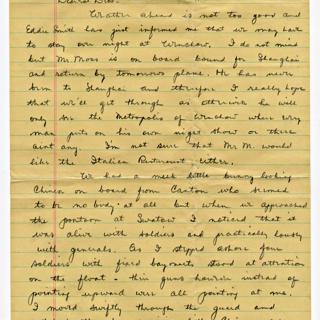 Dearest Dad:
Weather ahead is not too good and
Eddie Smith has just informed me that we may have
to stay over night at Wenchow. I do not mind
but Mr. Moss is on board bound for Shanghai
and return by tomorrows plane. He has never
been to Shanghai and therefore I really hope
that we'll get through as otherwise he will
only see the Metropolis of Wenchow where every
man puts on his own night show or there
aint any. I'm not sure that Mr M. would
like the Italian Restaurant, either.
We have a meek little looking
Chinese on board from Canton who seemed
to be no body at all but when we approached
the pontoon at Swatow I noticed that it
was alive with soldiers and practically lousy
with generals. As I stepped ashore four
soldiers with fixed bayonets stood at attention
on the float - their guns however instead of
pointing upward were all pointing at me.
I moved swiftly through the guard and